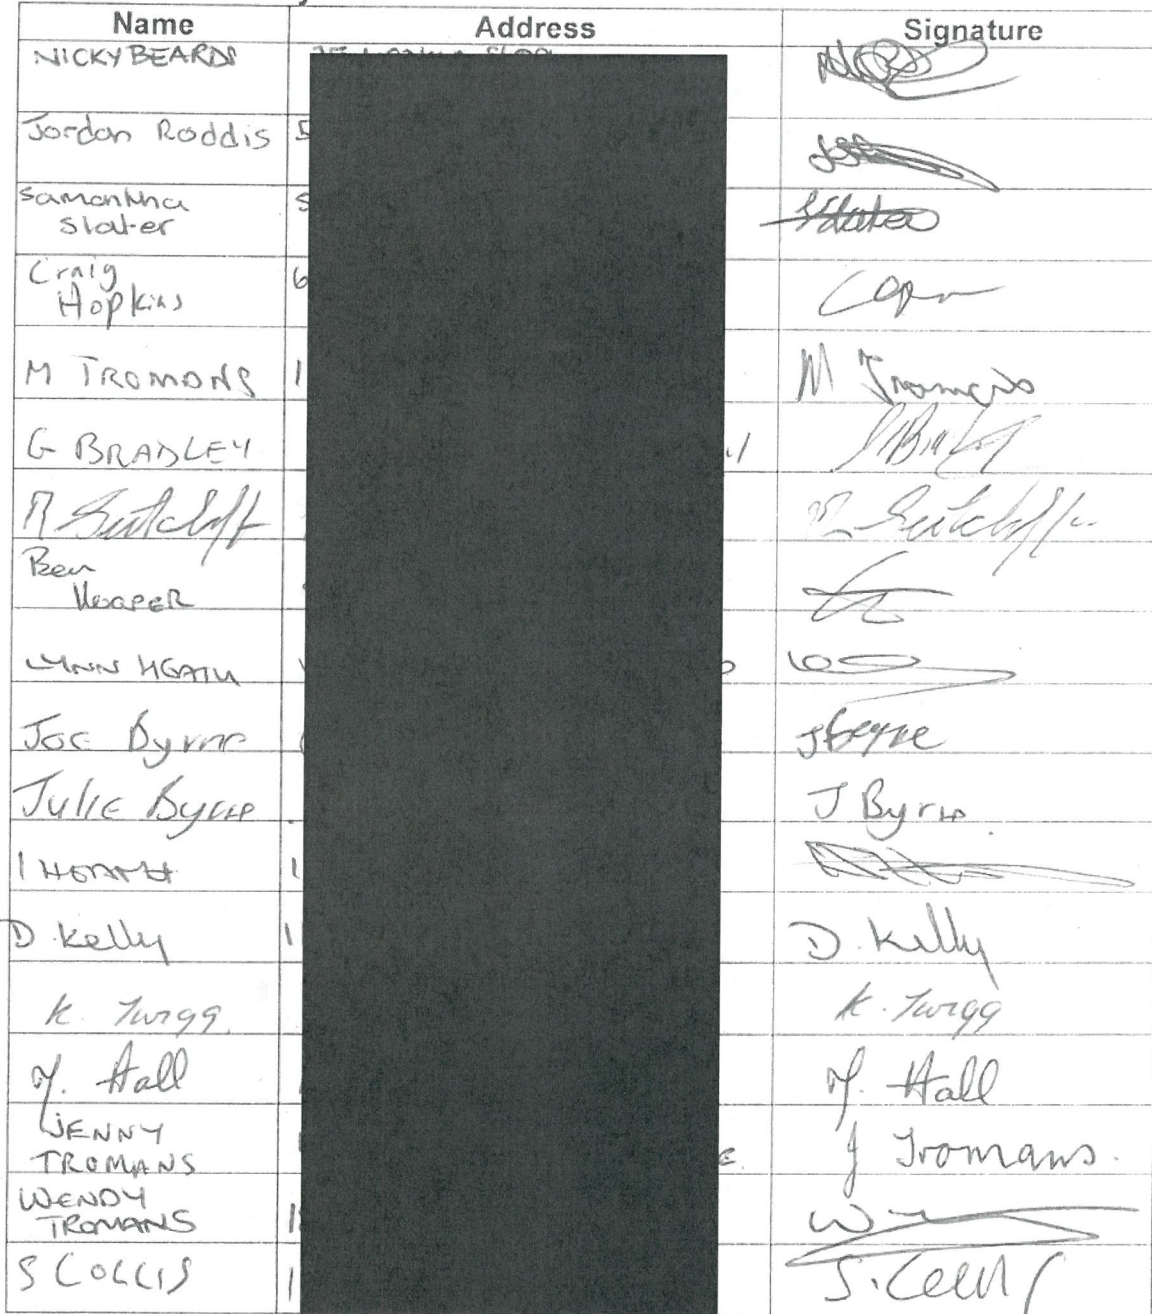 Name Address Signature
NICKY BEARDS
Jordan Roddis 5
Samantha 5
Slater Slater
Craig 6
Hopkins
M TROMANS 1 M Tromans
G BRADLEY
R Sutcliff R Sutcliffe
Ben
HOOPER
LYNN HEATH
Joe Byrne J Byrne
Julie Byrne J Byrne
I HEATH 1
D. Kelly 1 D. Kelly
K. Twigg. K. Twigg
M. Hall M. Hall
JENNY
TROMANS J Tromans.
WENDY
TROMANS
S COLLIS 1 S. Collis